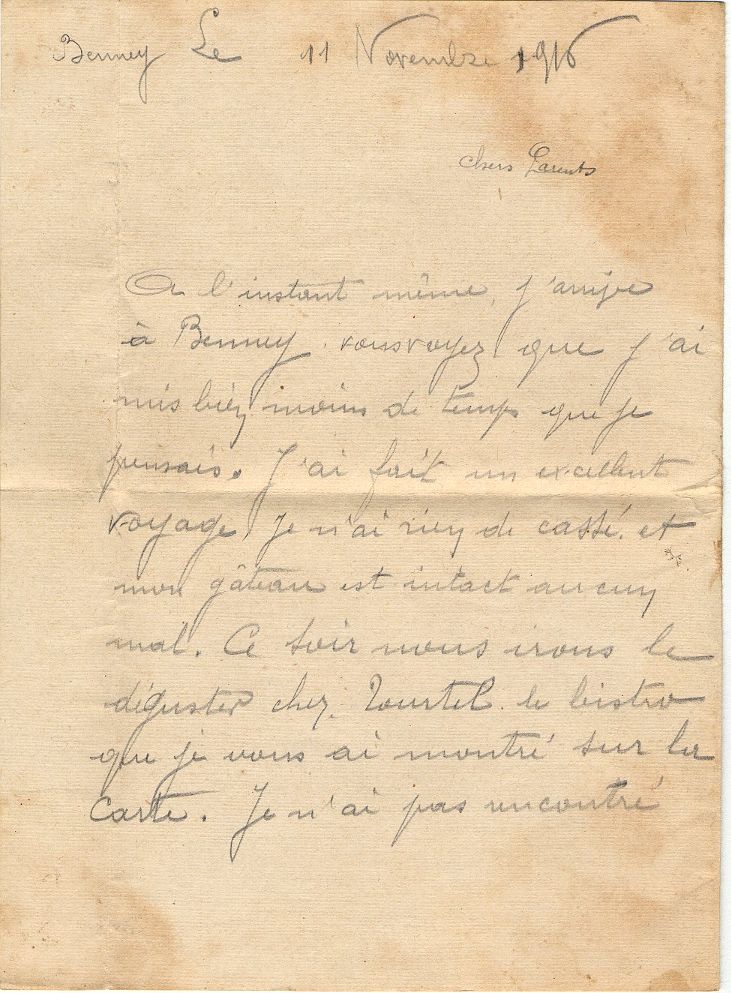 Benney Le 11 Novembre 1916
chers Parents
A l'instant même, j'arrive
à Benney. vous voyez que j'ai
mis bien moins de temps que je
pensais. J'ai fait un excellent
voyage, je n'ai rien de cassé. et
mon gâteau est intact aucun
mal. Ce soir nous irons le
déguster chez Tourtel. le bistro
que je vous ai montré sur la
Carte. Je n'ai pas rencontré